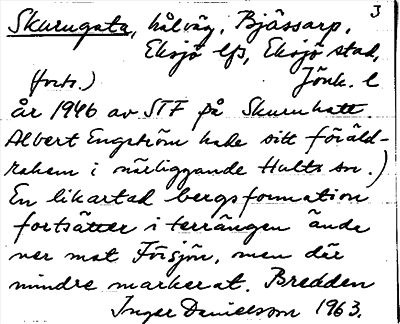 3
Skurugata, hålväg, Bjässarp,
Eksjö lfs, Eksjö stad,
(forts.) Jönk. l
år 1946 av STF på Skuruhatt.
Albert Engström hade sitt föräld-
rahem i närliggande Hults sn.)
En likartad bergsformation
fortsätter i terrängen ände
ner mot Försjön, men där
mindre markerat. Bredden
Inger Danielsson 1963.